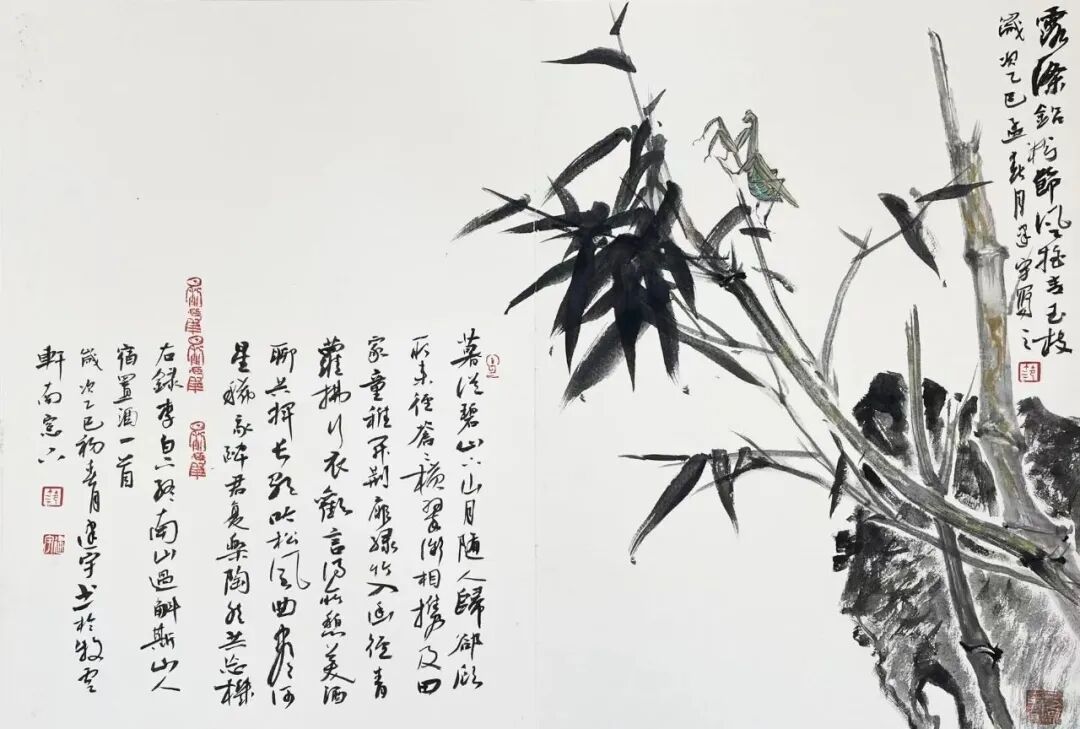 露滌鉛粉節風搖青玉枝
歲次乙巳孟春月建宇寫之
暮從碧山下山月隨人歸卻顧
所來徑蒼〻橫翠微相攜及田
家童稚開荊扉綠竹入幽徑青
蘿拂行衣歡言得所憩美酒
聊共揮長歌吟松風曲盡河
星稀我醉君復樂陶然共忘機
右錄李白下終南山過斛斯山人
宿置酒一首
歲次乙巳初春月建宇書於牧雲
軒南窗下